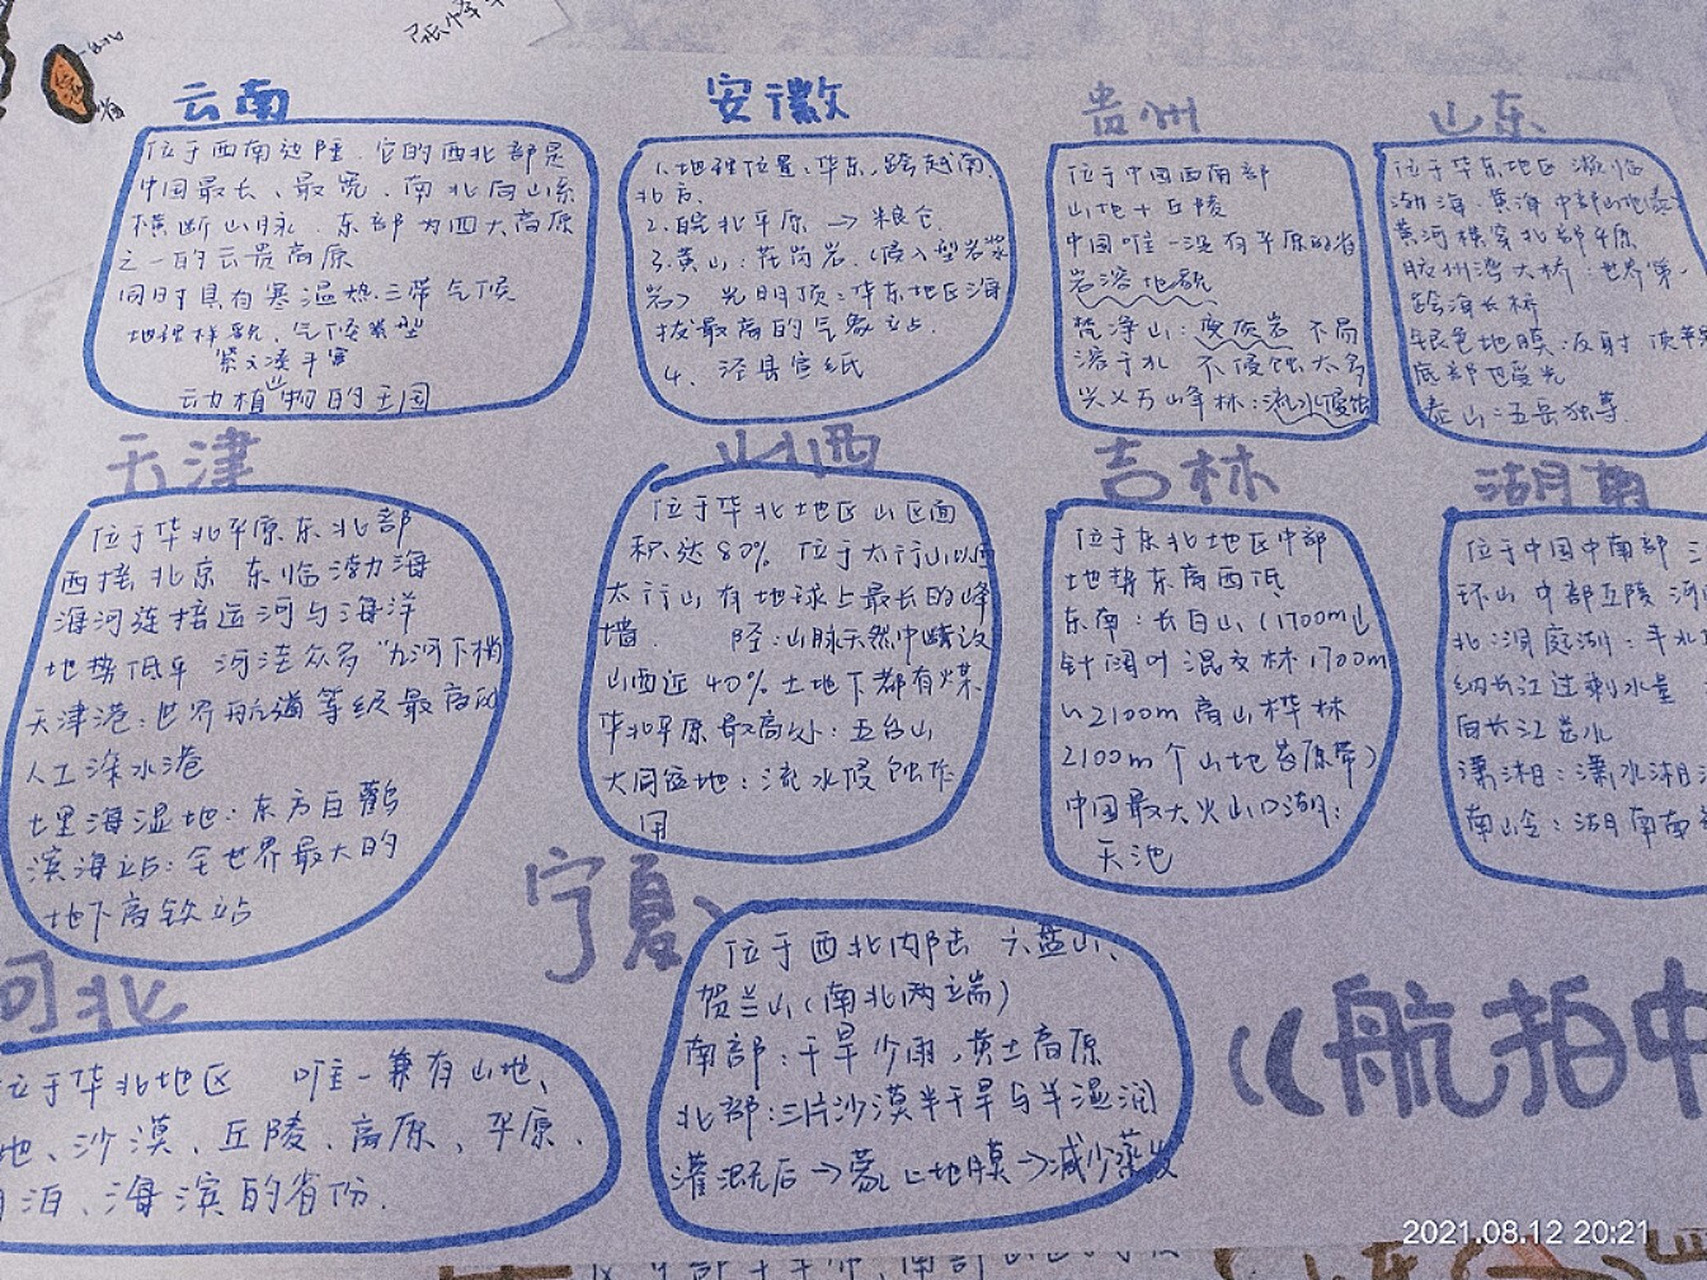 云南
位于西南边陲.它的西北部是
中国最长、最宽.南北向山系
横断山脉.东部为四大高原
之一的云贵高原
同时具有寒温热三带气候
地理样貌、气候类型
动植物的王国
安徽
1.地理位置:华东,跨越南、
北方.
2.皖北平原→粮仓.
3.黄山:花岗岩.(侵入型岩浆
岩) 光明顶:华东地区海
拔最高的气象站.
4. 泾县宣纸
贵州
位于中国西南部
山地+丘陵
中国唯一没有平原的省
岩溶地貌
梵净山:变质岩 不易
溶于水 不侵蚀太多
兴义万峰林:流水侵蚀
山东
位于华东地区 濒临
渤海.黄海 中部山地(泰
黄河横穿北部平原
胶州湾大桥:世界第一
跨海长桥
银色地膜:反射 使苹果
底部也受光
泰山:五岳独尊.
天津
位于华北平原东北部
西接北京 东临渤海
海河连接运河与海洋
地势低平 河洼众多“九河下梢
天津港:世界航道等级最高的
人工深水港
七里海湿地:东方白鹳
滨海站:全世界最大的
地下高铁站
山西
位于华北地区 山区面
积达80% 位于太行山以西
太行山有地球上最长的峰
墙. 陉:山脉天然中断
山西近40%土地下都有煤.
华北平原最高处:五台山
大同盆地:流水侵蚀作
用
吉林
位于东北地区中部
地势东高西低
东南:长白山(1700m↓
针阔叶混交林1700m
~2100m 高山桦林
2100m↑山地苔原带)
中国最大火山口湖:
天池
湖南
位于中国中南部 三
环山 中部丘陵
北:洞庭湖:丰水
纳长江过剩水量
向长江
潇湘:潇水湘
南山:湖南南
宁夏
位于西北内陆 六盘山、
贺兰山(南北两端)
南部:干旱少雨,黄土高原
北部:三片沙漠半干旱与半湿润
灌溉后→蒙上地膜→减少蒸发
河北
位于华北地区 唯一兼有山地、
地、沙漠、丘陵、高原、平原.
泊、海滨的省份.
《航拍中
2021.08.12 20:21